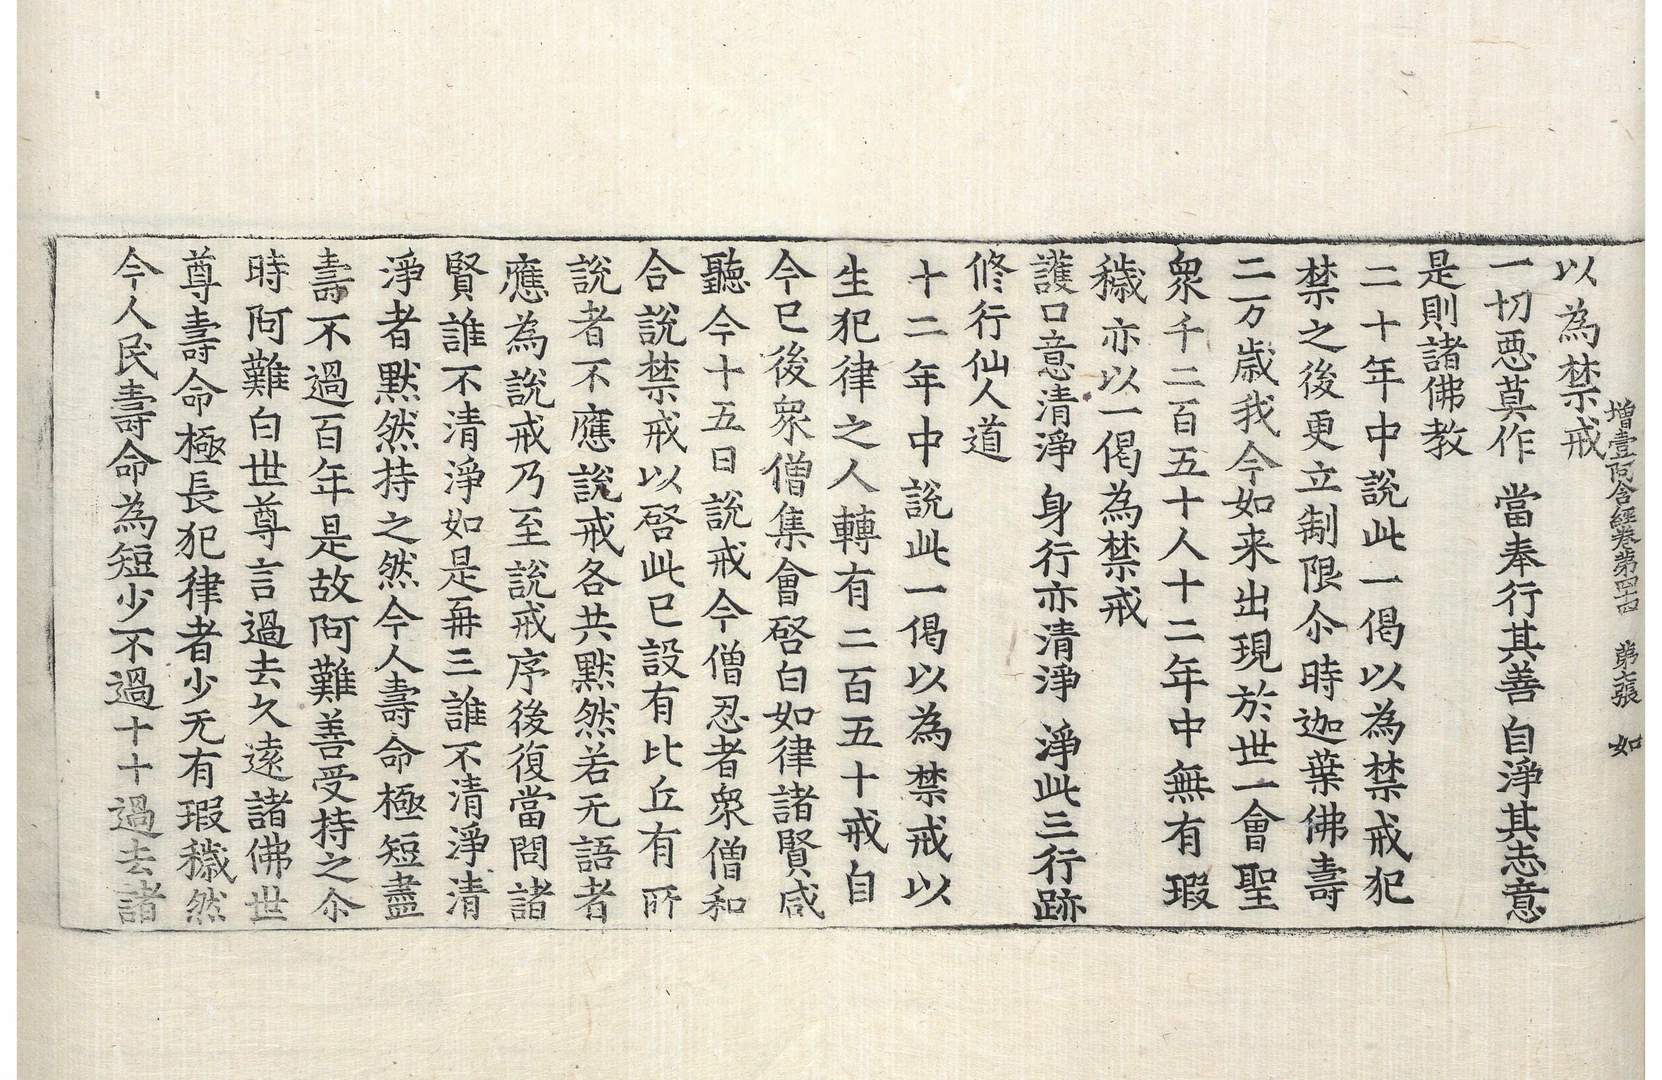 以為禁戒
增壹阿含經卷第四十四　第六張　如
一切惡莫作　當奉行其善　自淨其志意
是則諸佛教
二十年中說此一偈以為禁戒犯
禁之後更立制限尒時迦葉佛壽
二万歲我今如来出現於世一會聖
衆千二百五十人十二年中無有瑕
穢亦以一偈為禁戒
護口意清淨　身行亦清淨　淨此三行跡
修行仙人道
十二年中說此一偈以為禁戒以
生犯律之人轉有二百五十戒自
今已後衆僧集會啓白如律諸賢咸
聽今十五日說戒今僧忍者衆僧和
合說禁戒以啓此已設有比丘有所
說者不應說戒各共默然若无語者
應為說戒乃至說戒序後復當問諸
賢誰不清淨如是再三誰不清淨清
淨者默然持之然今人壽命極短盡
壽不過百年是故阿難善受持之尒
時阿難白世尊言過去久遠諸佛世
尊壽命極長犯律者少无有瑕穢然
今人民壽命為短少不過十十過去諸